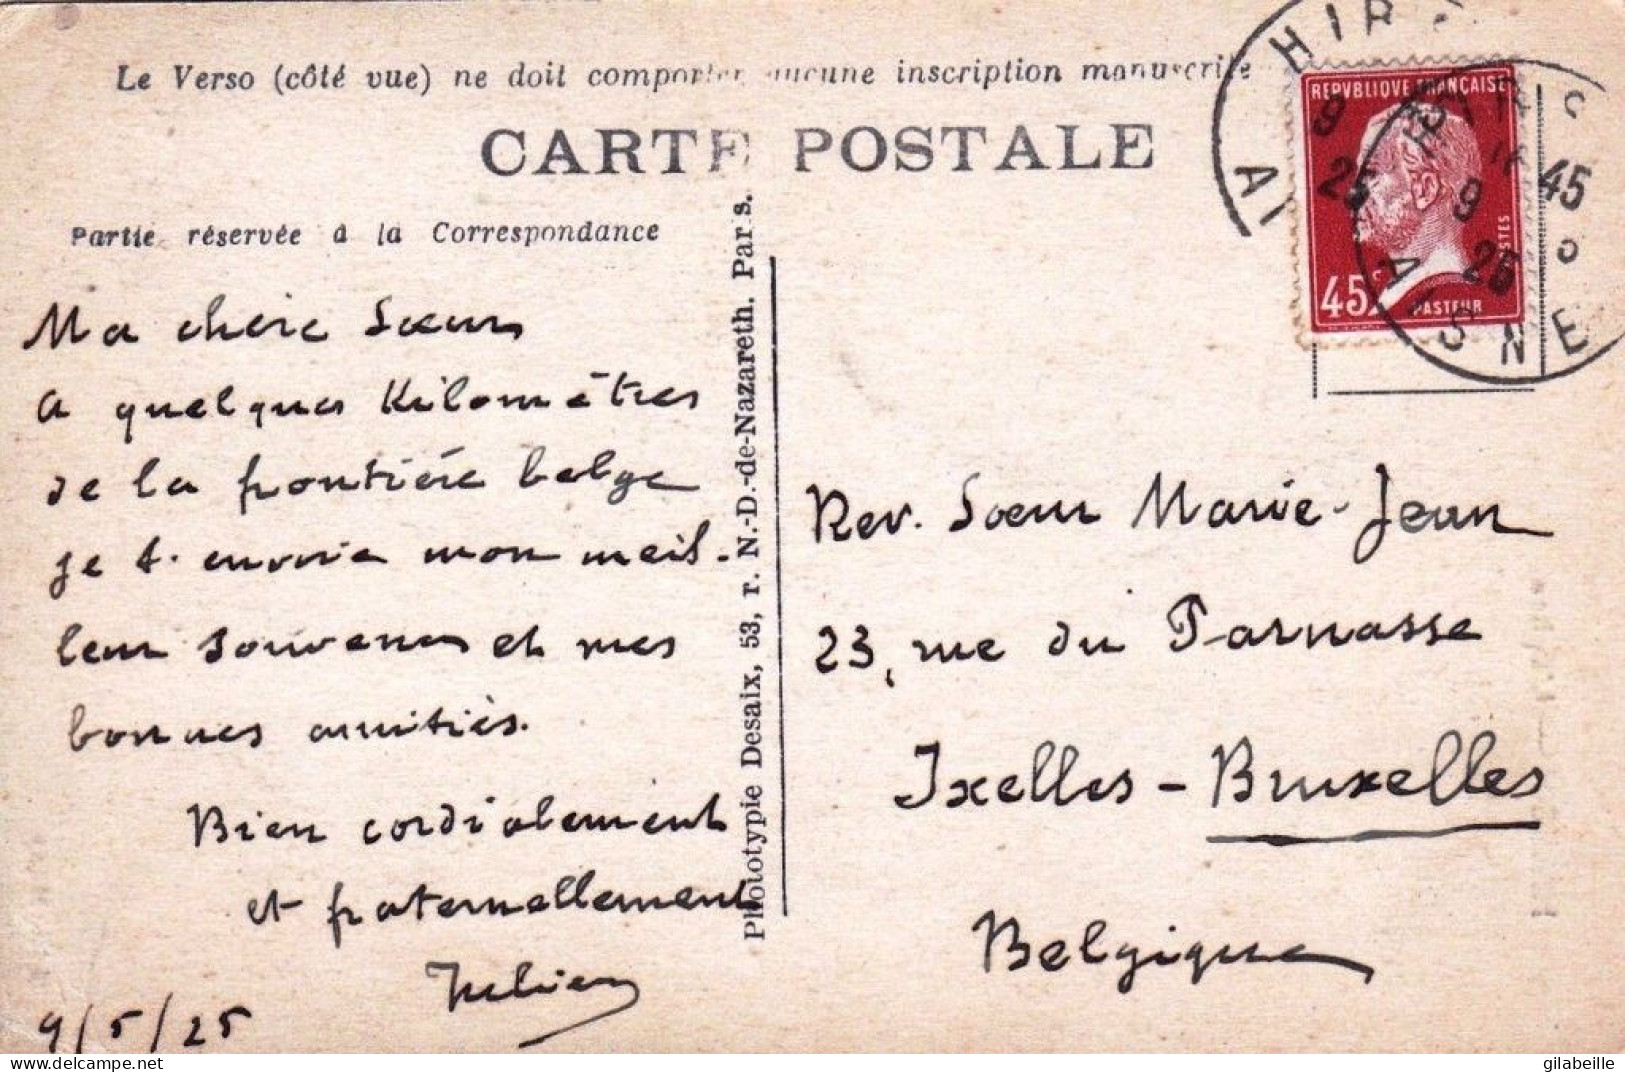 Le Verso (côté vue) ne doit comporter aucune inscription manuscrite
CARTE POSTALE
Partie réservée à la Correspondance
Ma chère Sœur
A quelques Kilomètres
de la frontière belge
je t'envoie mon meil-
leur souvenir et mes
bonnes amitiés.
Bien cordialement
et fraternellement
Julien
9/5/25
Phototypie Desaix, 53, r. N.-D.-de-Nazareth. Paris.
REPVBLIQVE FRANÇAISE
POSTES
45c
PASTEUR
HIR
9
25
AI
45
9
25
AISNE
Rev. Sœur Marie-Jean
23, rue du Parnasse
Ixelles - Bruxelles
Belgique
delcampe.net
gilabeille